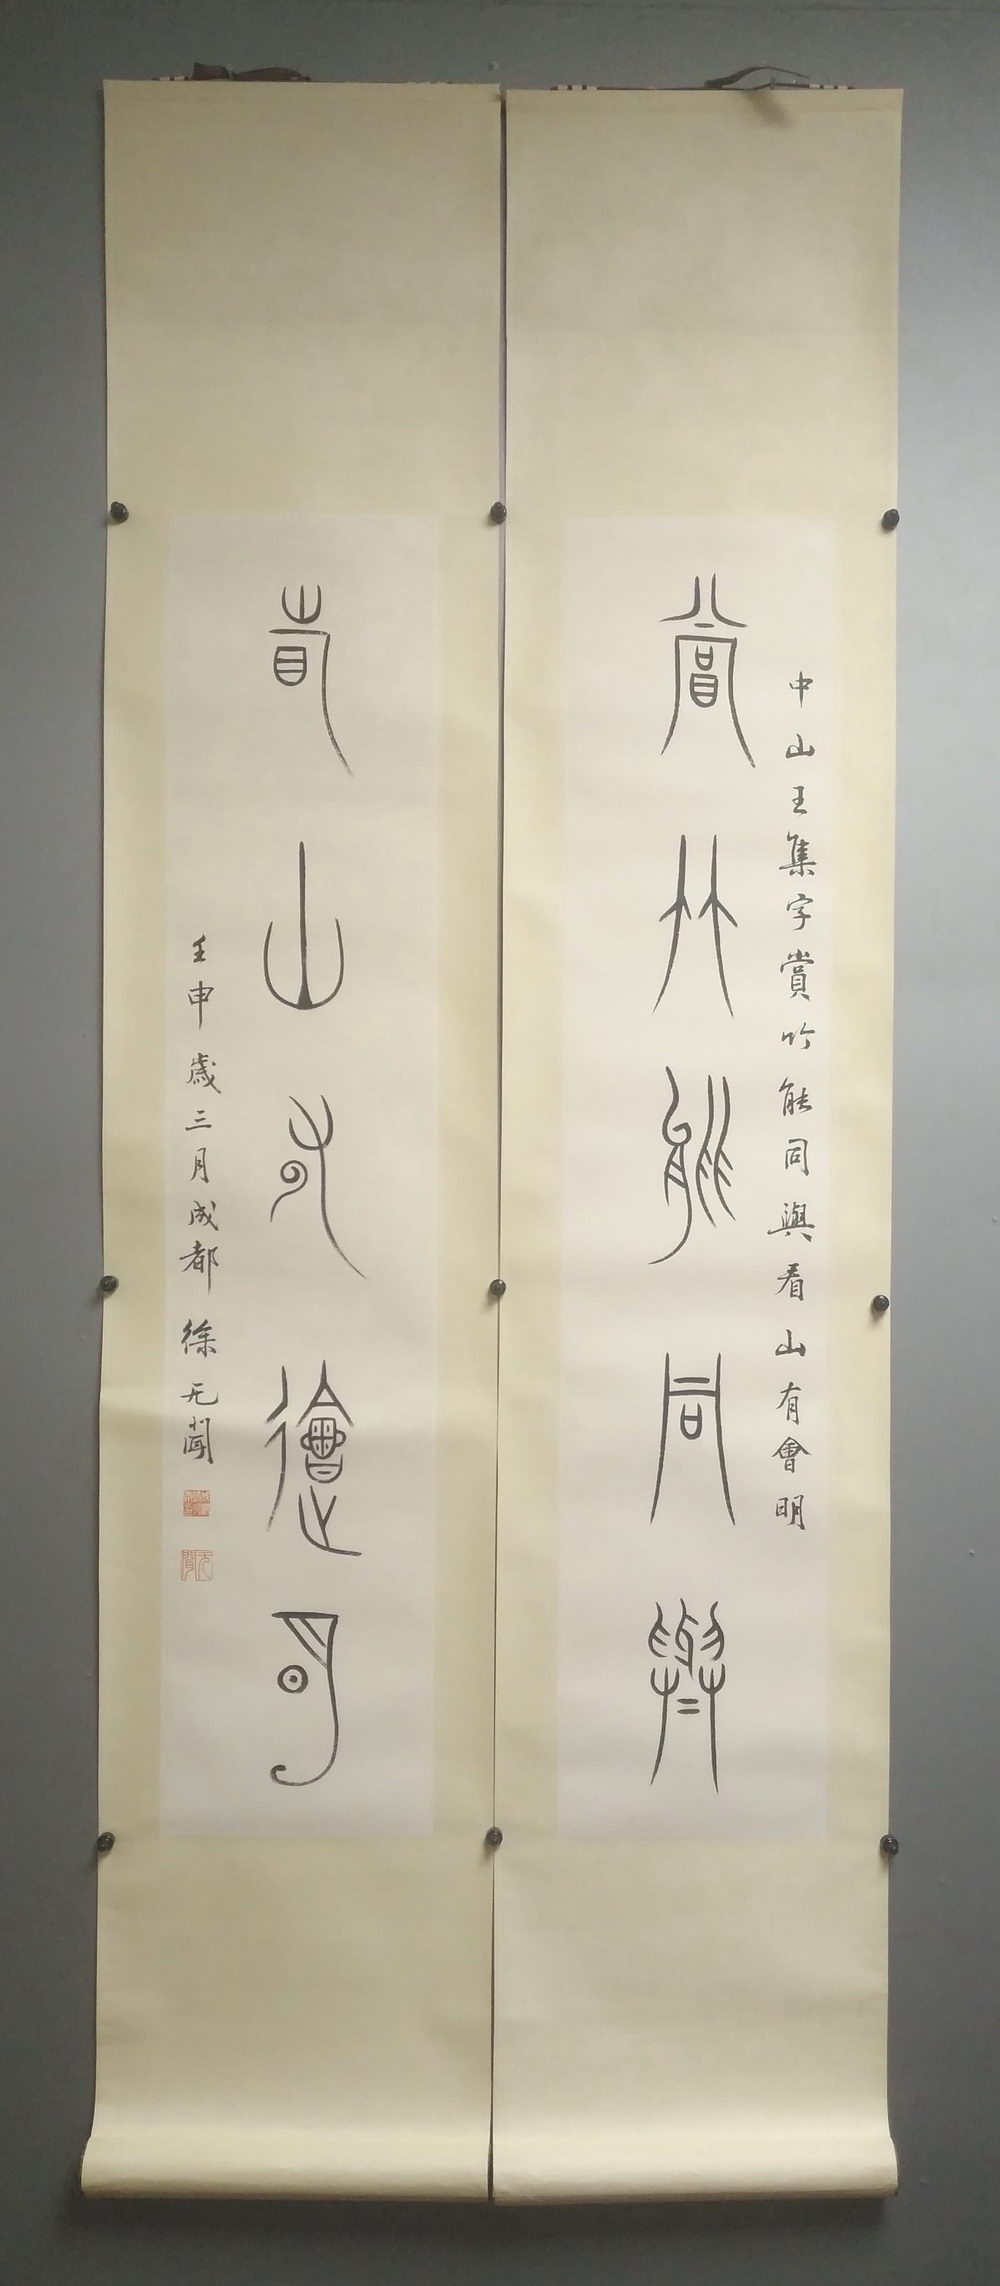 中山王集字賞竹能同與看山有會明
賞竹能同與
看山有會明
壬申歲三月成都徐无聞